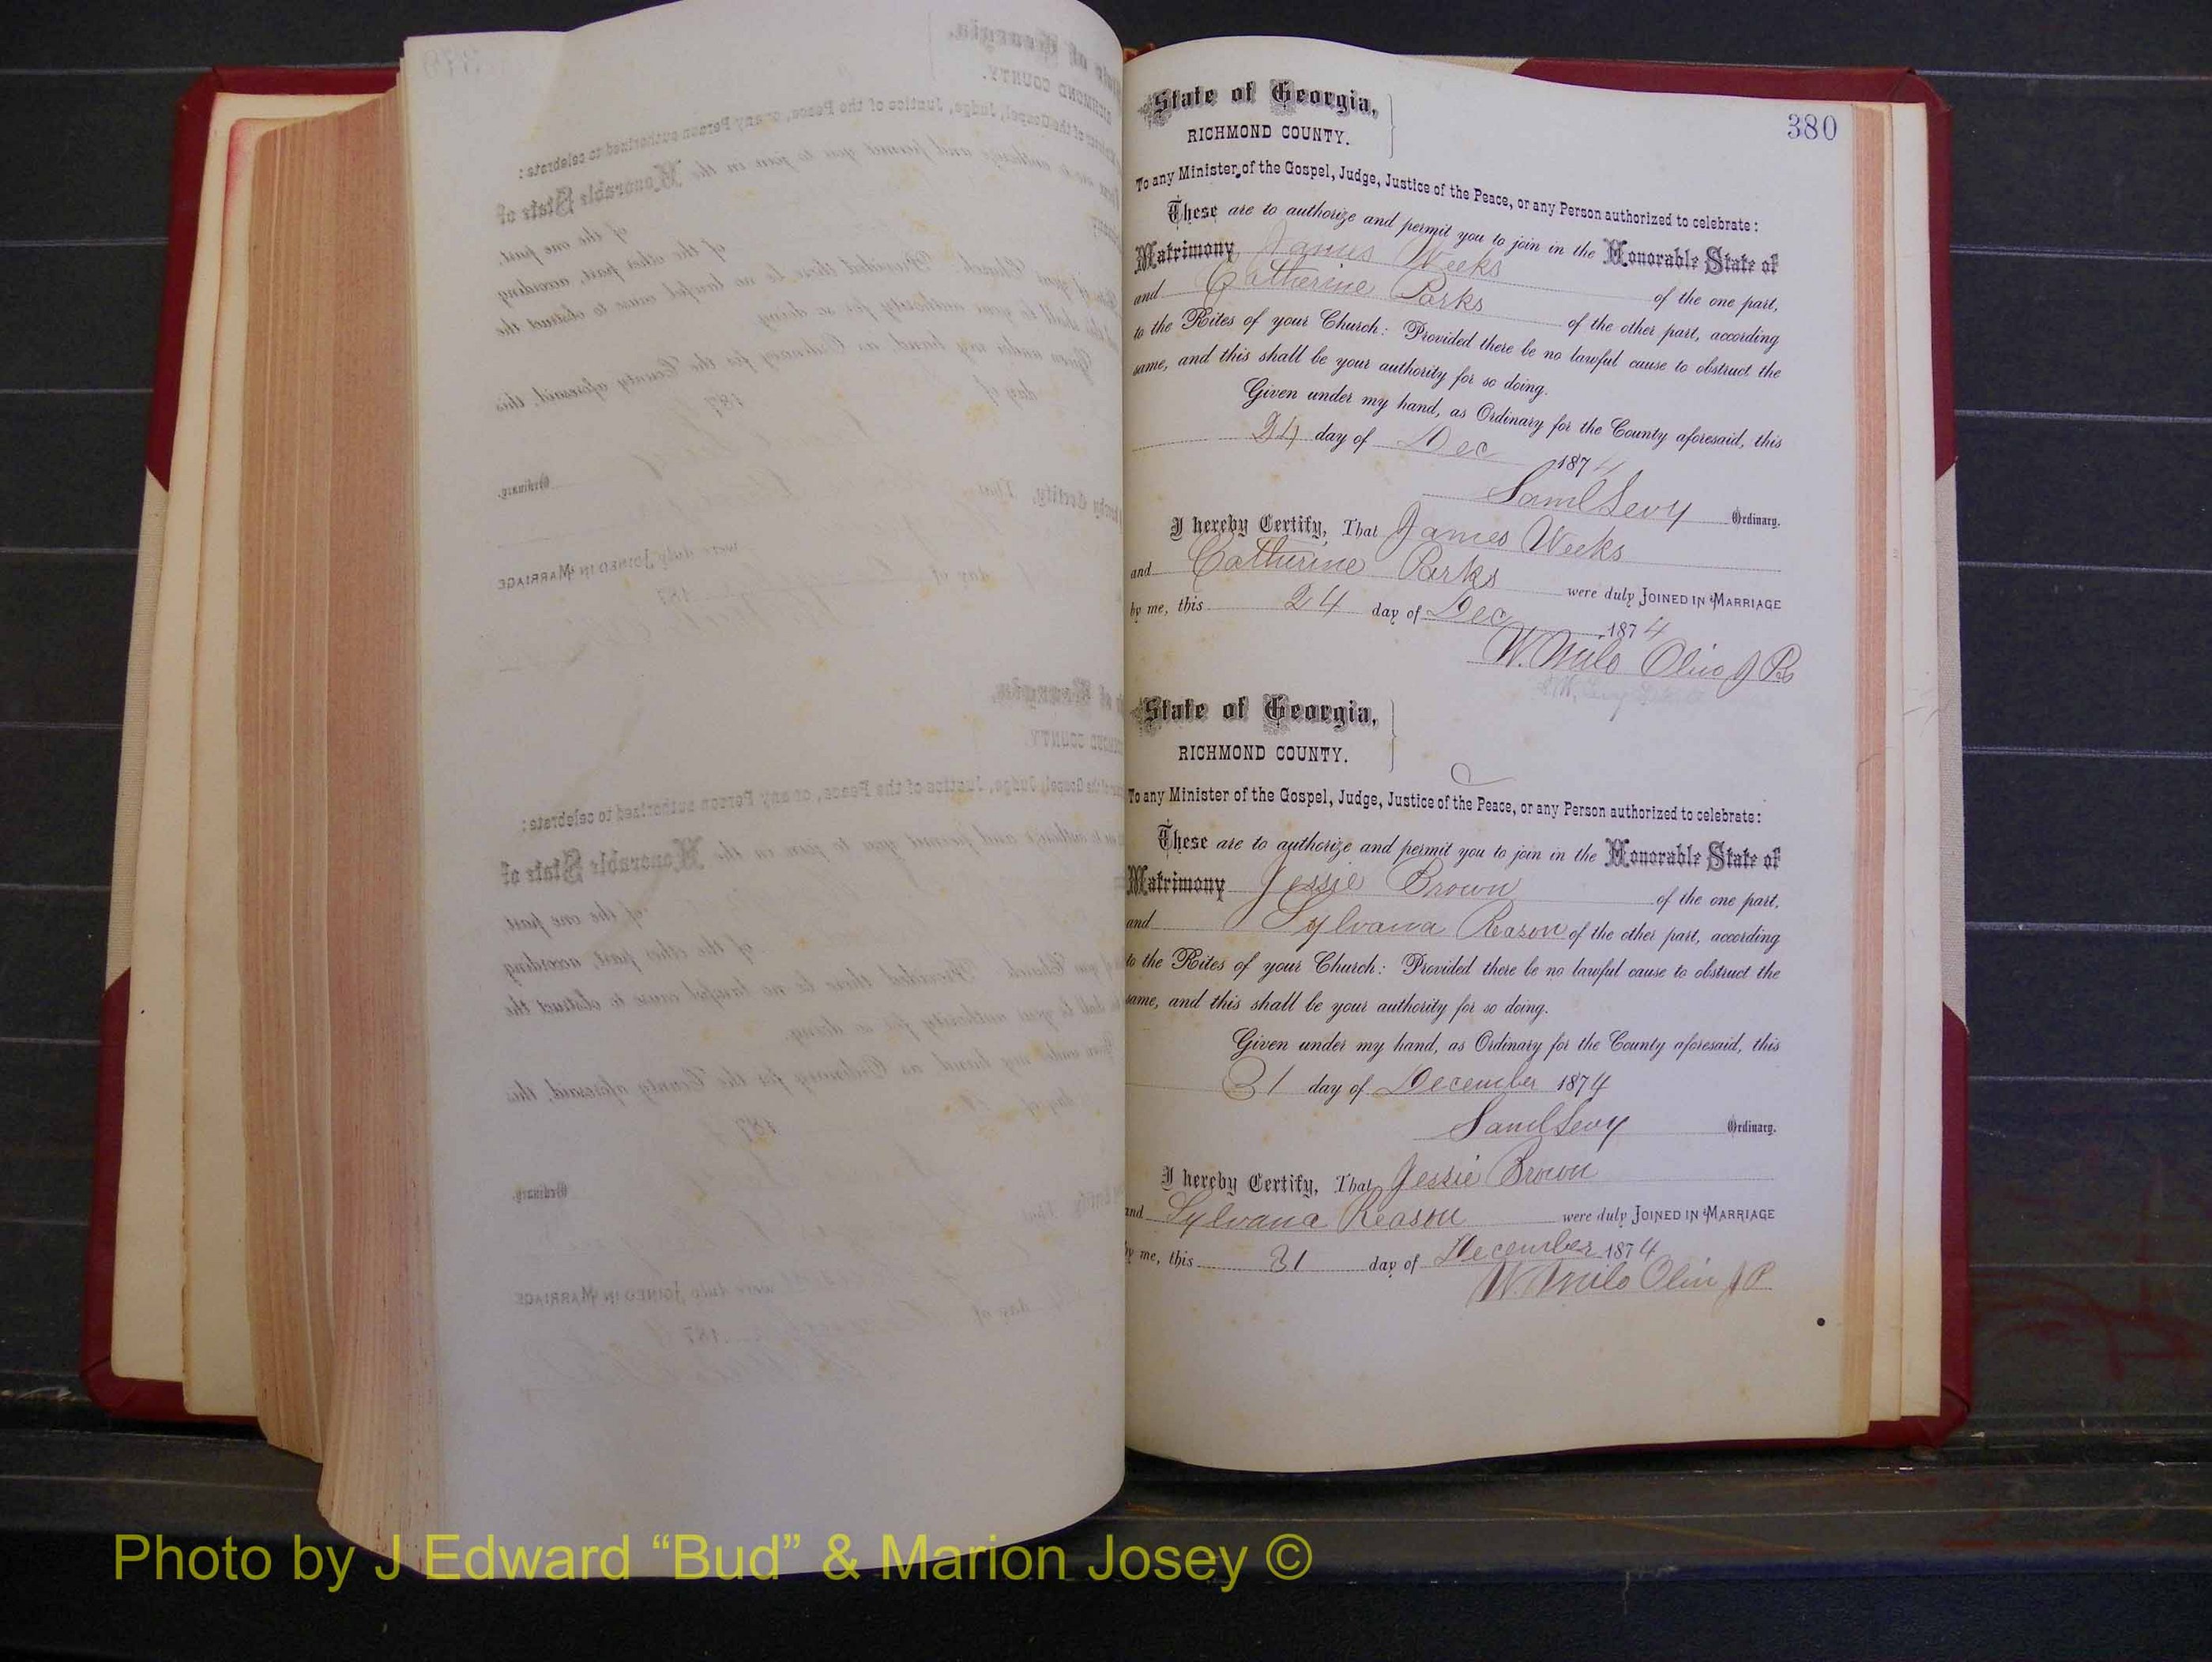 380
State of Georgia,
RICHMOND COUNTY.
To any Minister of the Gospel, Judge, Justice of the Peace, or any Person authorized to celebrate:
These are to authorize and permit you to join in the Honorable State of
Matrimony James Weeks of the one part,
and Catherine Parks of the other part, according
to the Rites of your Church: Provided there be no lawful cause to obstruct the
same, and this shall be your authority for so doing.
Given under my hand, as Ordinary for the County aforesaid, this
24 day of Dec 1874
Saml Levy Ordinary.
I hereby Certify, That James Weeks
and Catherine Parks were duly JOINED IN MARRIAGE
by me, this 24 day of Dec 1874
W. Milo Olin J P
State of Georgia,
RICHMOND COUNTY.
To any Minister of the Gospel, Judge, Justice of the Peace, or any Person authorized to celebrate:
These are to authorize and permit you to join in the Honorable State of
Matrimony Jessie Brown of the one part,
and Sylvana Reason of the other part, according
to the Rites of your Church: Provided there be no lawful cause to obstruct the
same, and this shall be your authority for so doing.
Given under my hand, as Ordinary for the County aforesaid, this
31 day of December 1874
Saml Levy Ordinary.
I hereby Certify, That Jessie Brown
and Sylvana Reason were duly JOINED IN MARRIAGE
by me, this 31 day of December 1874
W. Milo Olin J P
Photo by J Edward “Bud” & Marion Josey ©